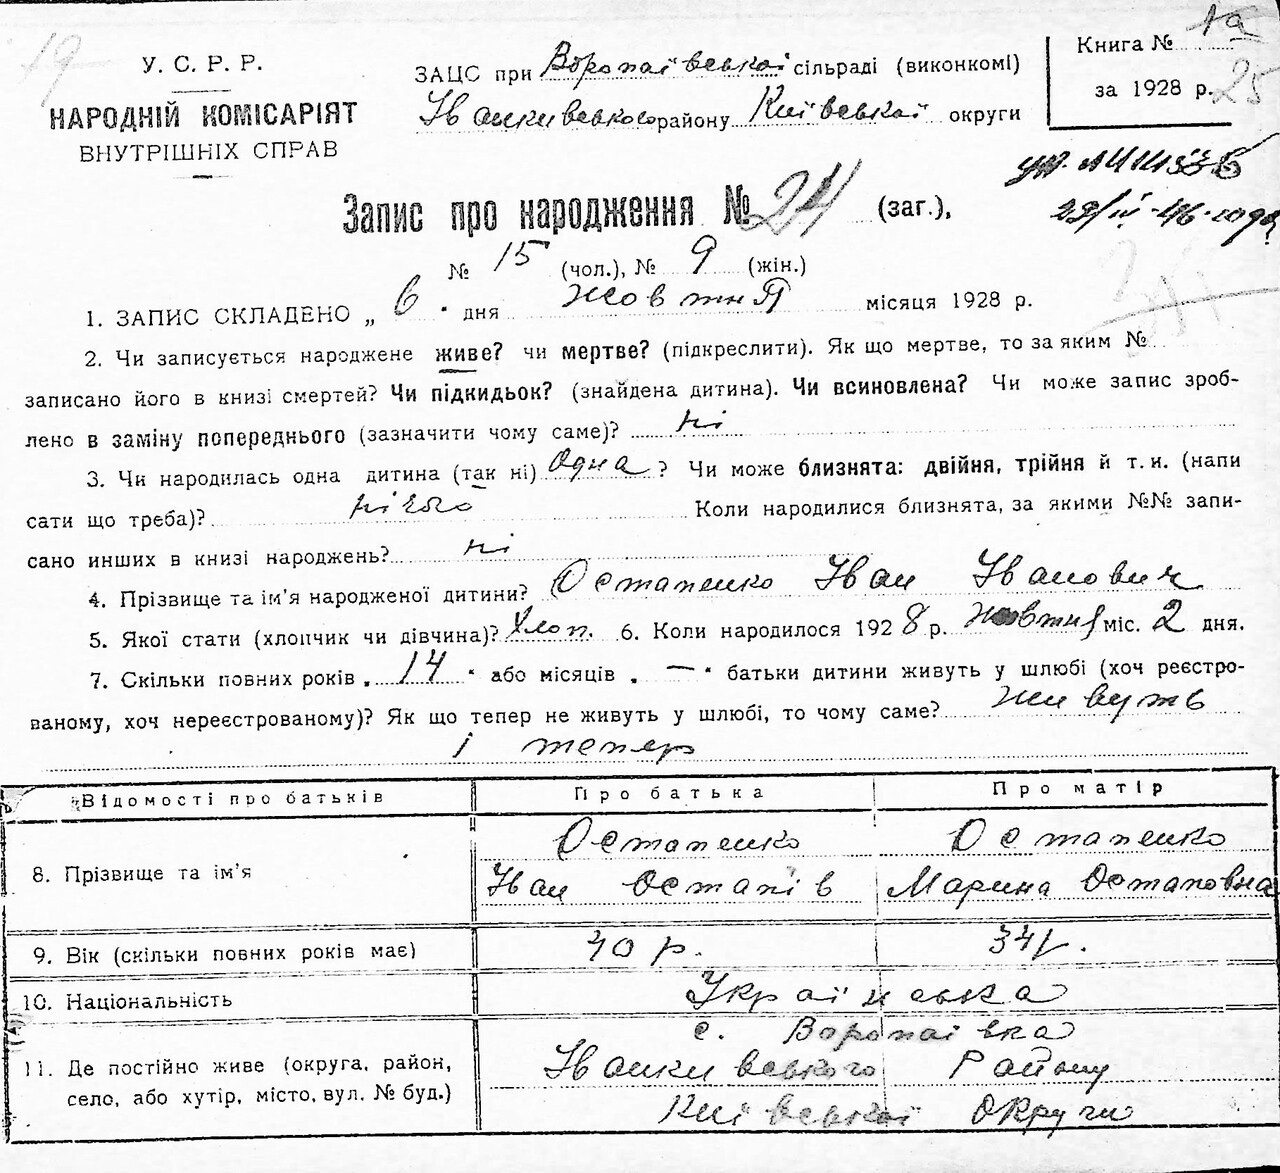 19
У. С. Р. Р.
НАРОДНІЙ КОМІСАРІЯТ
ВНУТРІШНІХ СПРАВ
ЗАЦС при Воропаївській сільраді (виконкомі)
Іванкивського району Київської округи
Книга № 1а
за 1928 р. 25
Запис про народження № 24 (заг.),
29/IV-46 года
№ 15 (чол.), № 9 (жін.)
1. ЗАПИС СКЛАДЕНО „ 6 " дня Жовтня місяця 1928 р.
2. Чи записується народжене живе? чи мертве? (підкреслити). Як що мертве, то за яким №
записано його в книзі смертей? Чи підкидьок? (знайдена дитина). Чи всиновлена? Чи може запис зроб-
лено в заміну попереднього (зазначити чому саме)? ні
3. Чи народилась одна дитина (так ні) Одна ? Чи може близнята: двійня, трійня й т. и. (напи
сати що треба)? нічого Коли народилися близнята, за якими №№ запи-
сано инших в книзі народжень? ні
4. Прізвище та ім'я народженої дитини? Остапенко Іван Іванович
5. Якої стати (хлопчик чи дівчина)? Хлоп. 6. Коли народилося 1928 р. Жовтня міс. 2 дня.
7. Скільки повних років „ 14 " або місяців „ — " батьки дитини живуть у шлюбі (хоч реєстро-
ваному, хоч нереєстрованому)? Як що тепер не живуть у шлюбі, то чому саме? Живуть
і тепер
Відомості про батьків Про батька Про матір
8. Прізвище та ім'я Остапенко Іван Остапів Остапенко Марина Остаповна
9. Вік (скільки повних років має) 40 р. 34 р.
10. Національність Українська
11. Де постійно живе (округа, район, село, або хутір, місто, вул. № буд.) с. Воропаівка
Іванкивського Району
Київської Округи